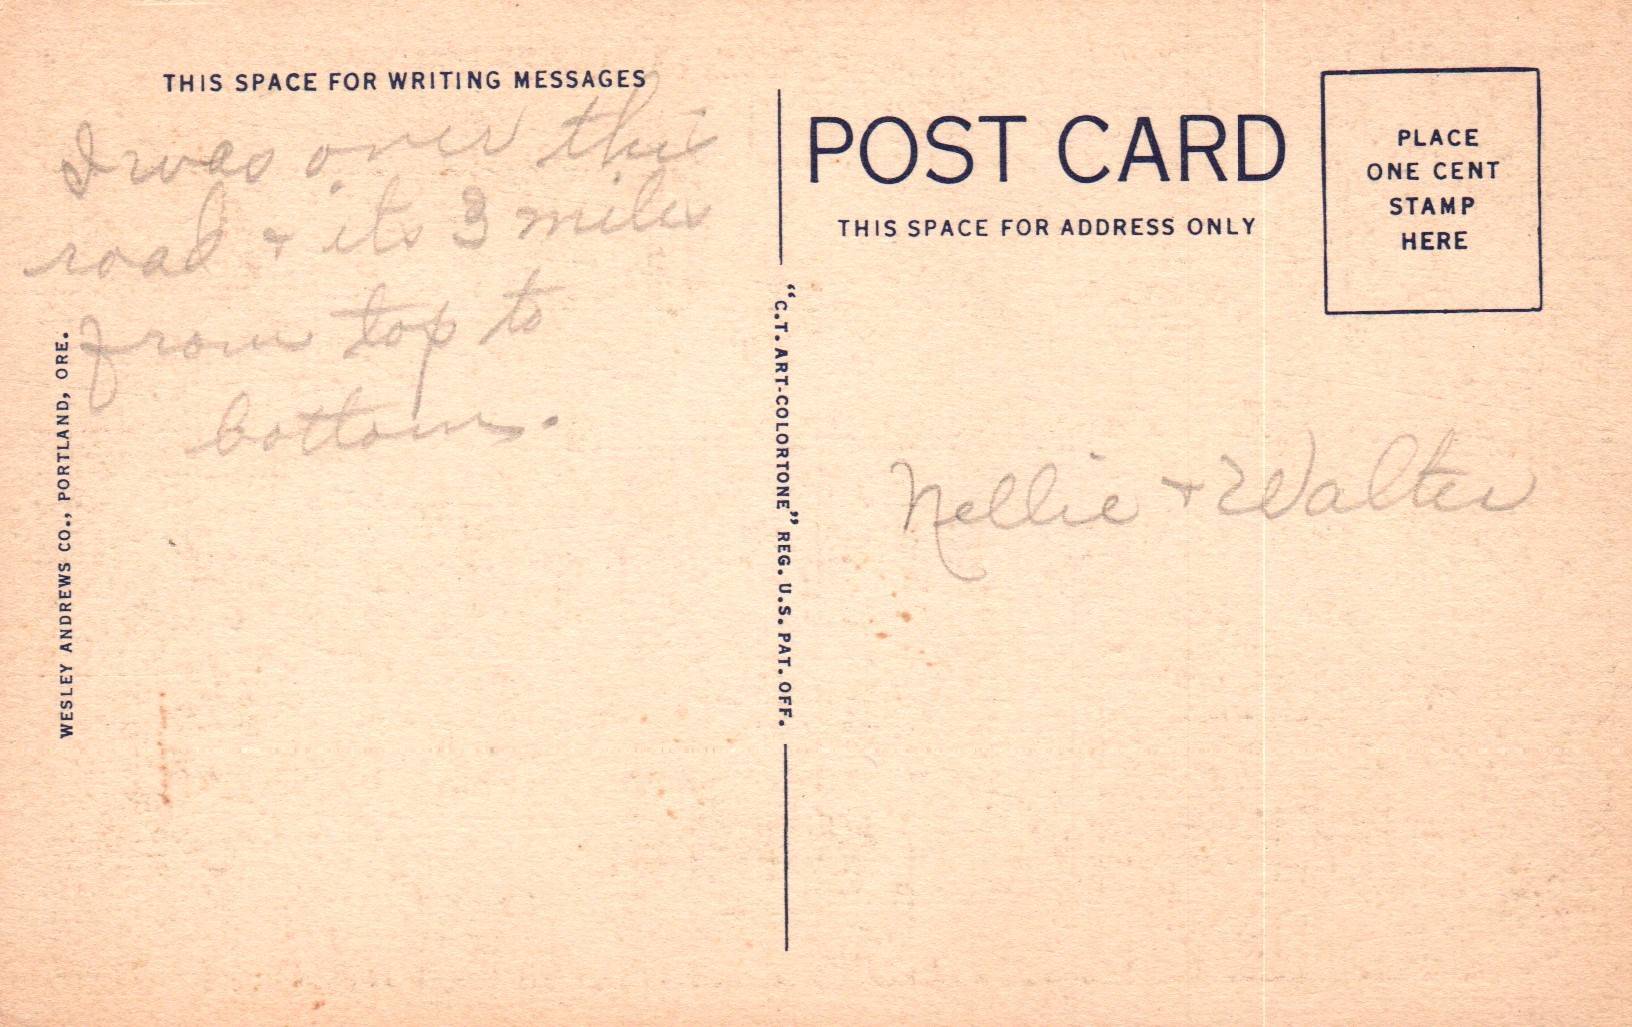 THIS SPACE FOR WRITING MESSAGES
I was over this
road + its 3 miles
from top to
bottom.
WESLEY ANDREWS CO., PORTLAND, ORE.
"C.T. ART-COLORTONE" REG. U.S. PAT. OFF.
POST CARD
THIS SPACE FOR ADDRESS ONLY
PLACE
ONE CENT
STAMP
HERE
Nellie + Walter